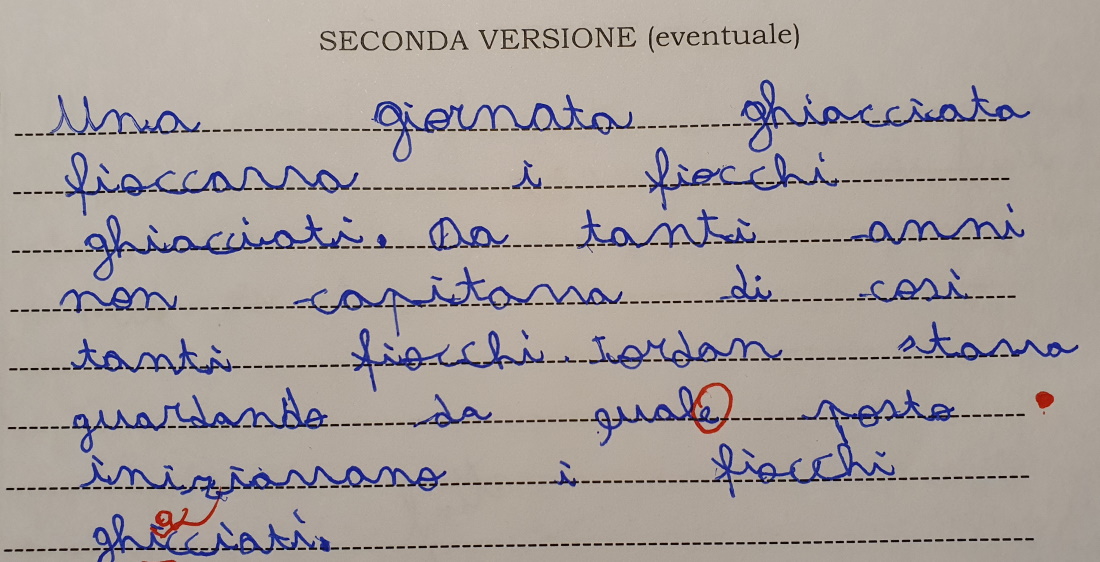 SECONDA VERSIONE (eventuale)
Una giornata ghiacciata
fioccava i fiocchi
ghiacciati. Da tanti anni
non capitava di così
tanti fiocchi. Iordan stava
guardando da quale posto
iniziavano i fiocchi
a
ghicciati.